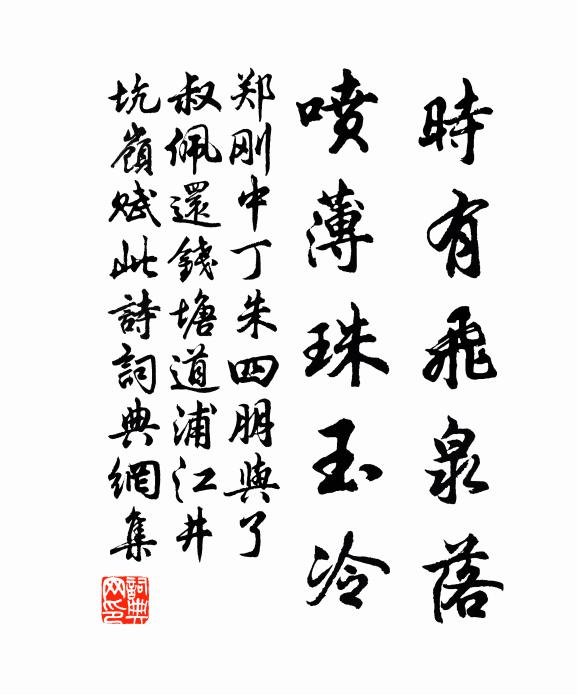 時有飛泉落
噴薄珠玉冷
郑刚中丁朱四朋與了
叔佩還錢塘道浦江井
坑嶺賦此詩詞典網集
詞典网印